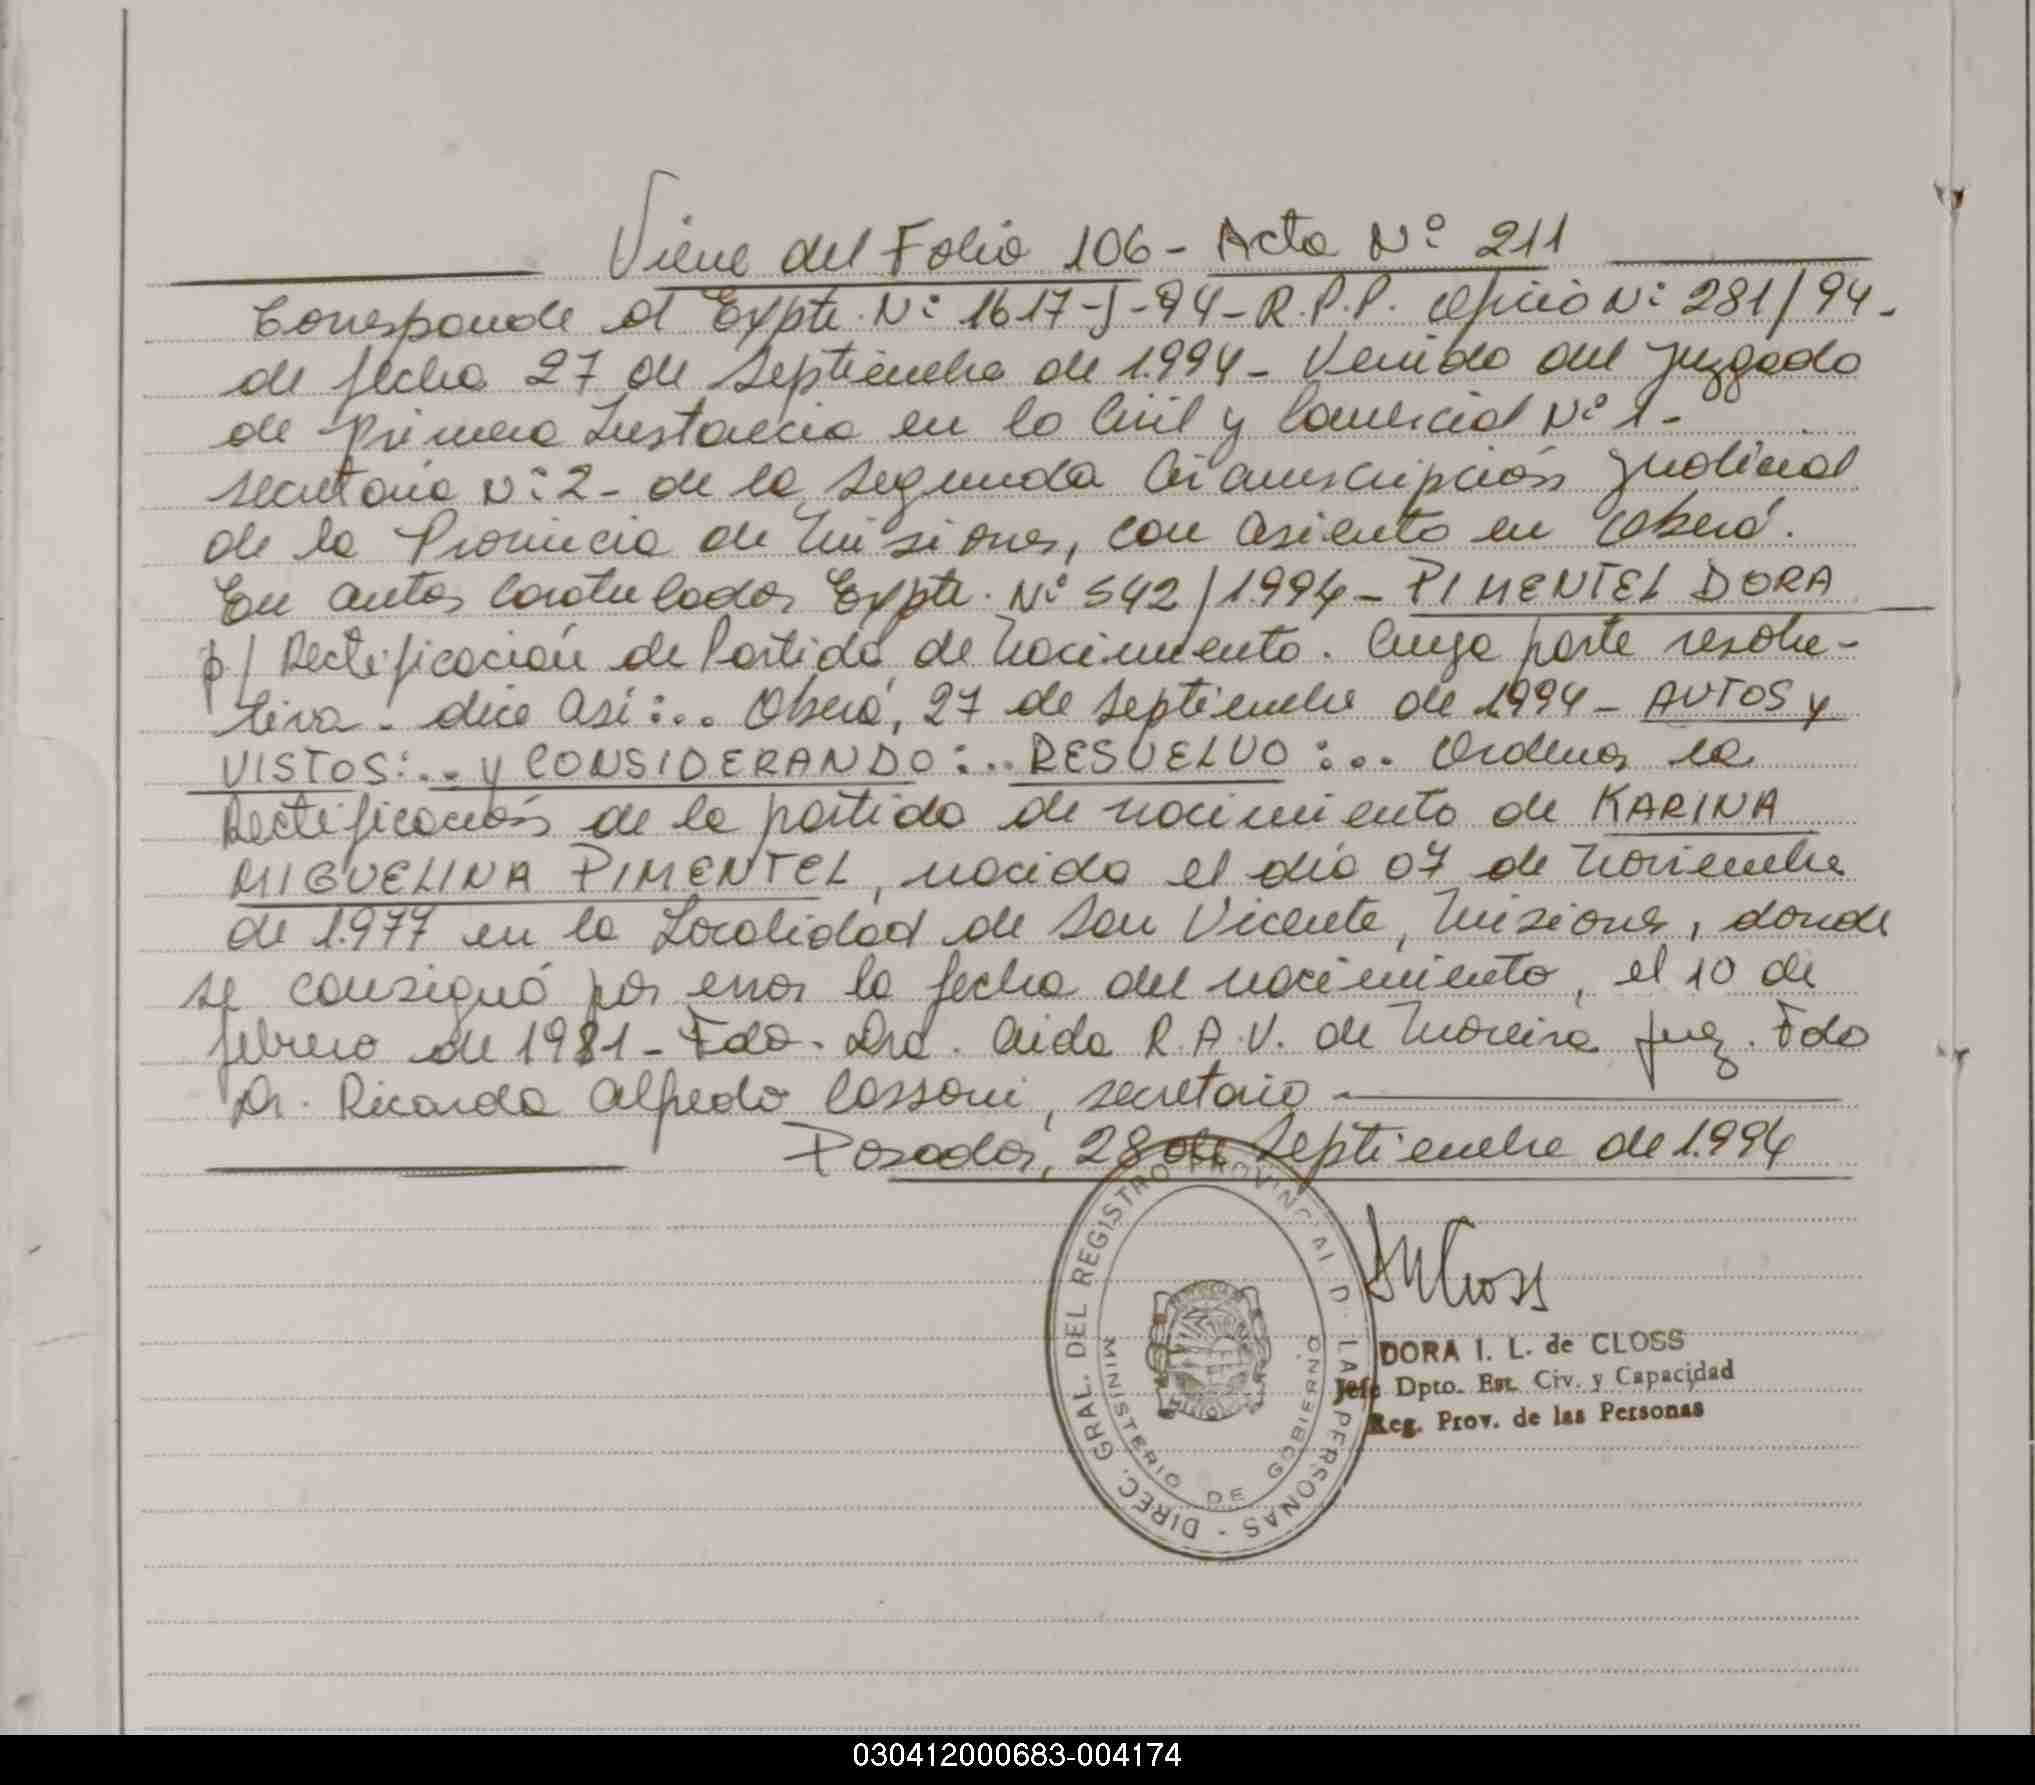 Viene del Folio 106 - Acta Nº 211
Corresponde al Expte. Nº 1617-J-94- R.P.P. Oficio Nº 281/94-
de fecha 27 de septiembre de 1.994- Venido del Juzgado
de Primera Instancia en lo Civil y Comercial Nº 1-
secretaria Nº 2- de la segunda Circunscripción Judicial
de la Provincia de Misiones, con asiento en Oberá.
En autos Caratulados Expte. Nº 542/1994- PIMENTEL DORA
p/ Rectificación de Partida de Nacimiento. Cuya parte resolu-
tiva- dice así:.. Oberá, 27 de septiembre de 1994- AUTOS y
VISTOS:.. y CONSIDERANDO:.. RESUELVO:... Ordenar la
Rectificación de la partida de nacimiento de KARINA
MIGUELINA PIMENTEL, nacida el día 07 de Noviembre
de 1.977 en la Localidad de San Vicente, Misiones, donde
se consignó por error la fecha del nacimiento, el 10 de
febrero de 1981- Fdo. Dra. Aida R.A.V. de Moreira Juez. Fdo
Dr. Ricardo Alfredo Cassoni, secretario-
Posadas, 28 de Septiembre de 1.994
DIREC. GRAL. DEL REGISTRO PROVINCIAL D LA PERSONAS -
MINISTERIO DE GOBIERNO
DORA I. L. de CLOSS
Jefe Dpto. Est. Civ. y Capacidad
Reg. Prov. de las Personas
030412000683-004174